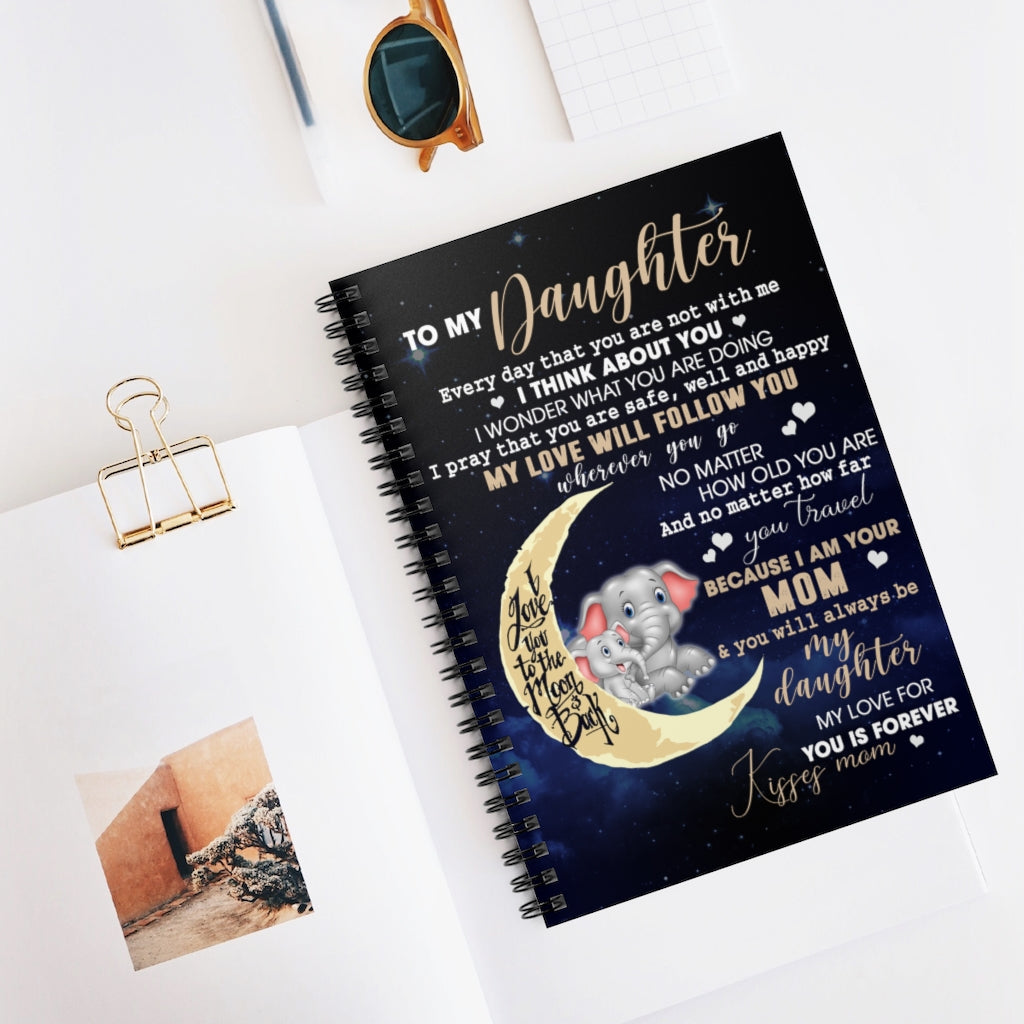 TO MY Daughter
Every day that you are not with me
I THINK ABOUT YOU
I WONDER WHAT YOU ARE DOING
I pray that you are safe, well and happy
MY LOVE WILL FOLLOW YOU
wherever you go
NO MATTER
HOW OLD YOU ARE
And no matter how far
you travel
BECAUSE I AM YOUR
MOM
& you will always be
my
daughter
MY LOVE FOR
YOU IS FOREVER
Kisses mom
I
Love
You
to the
Moon
&
Back